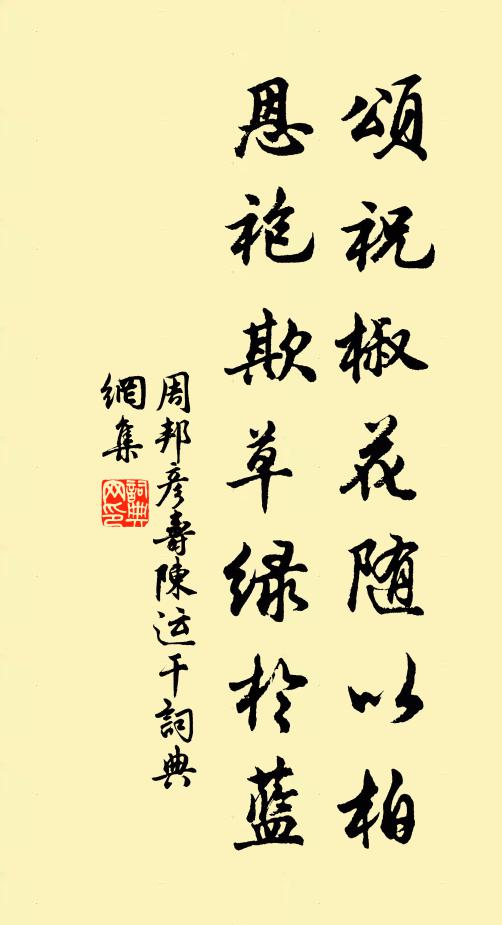 頌祝椒花随以柏
恩袍欺草緑於藍
周邦彦壽陳运干詞典
網集
詞典网印